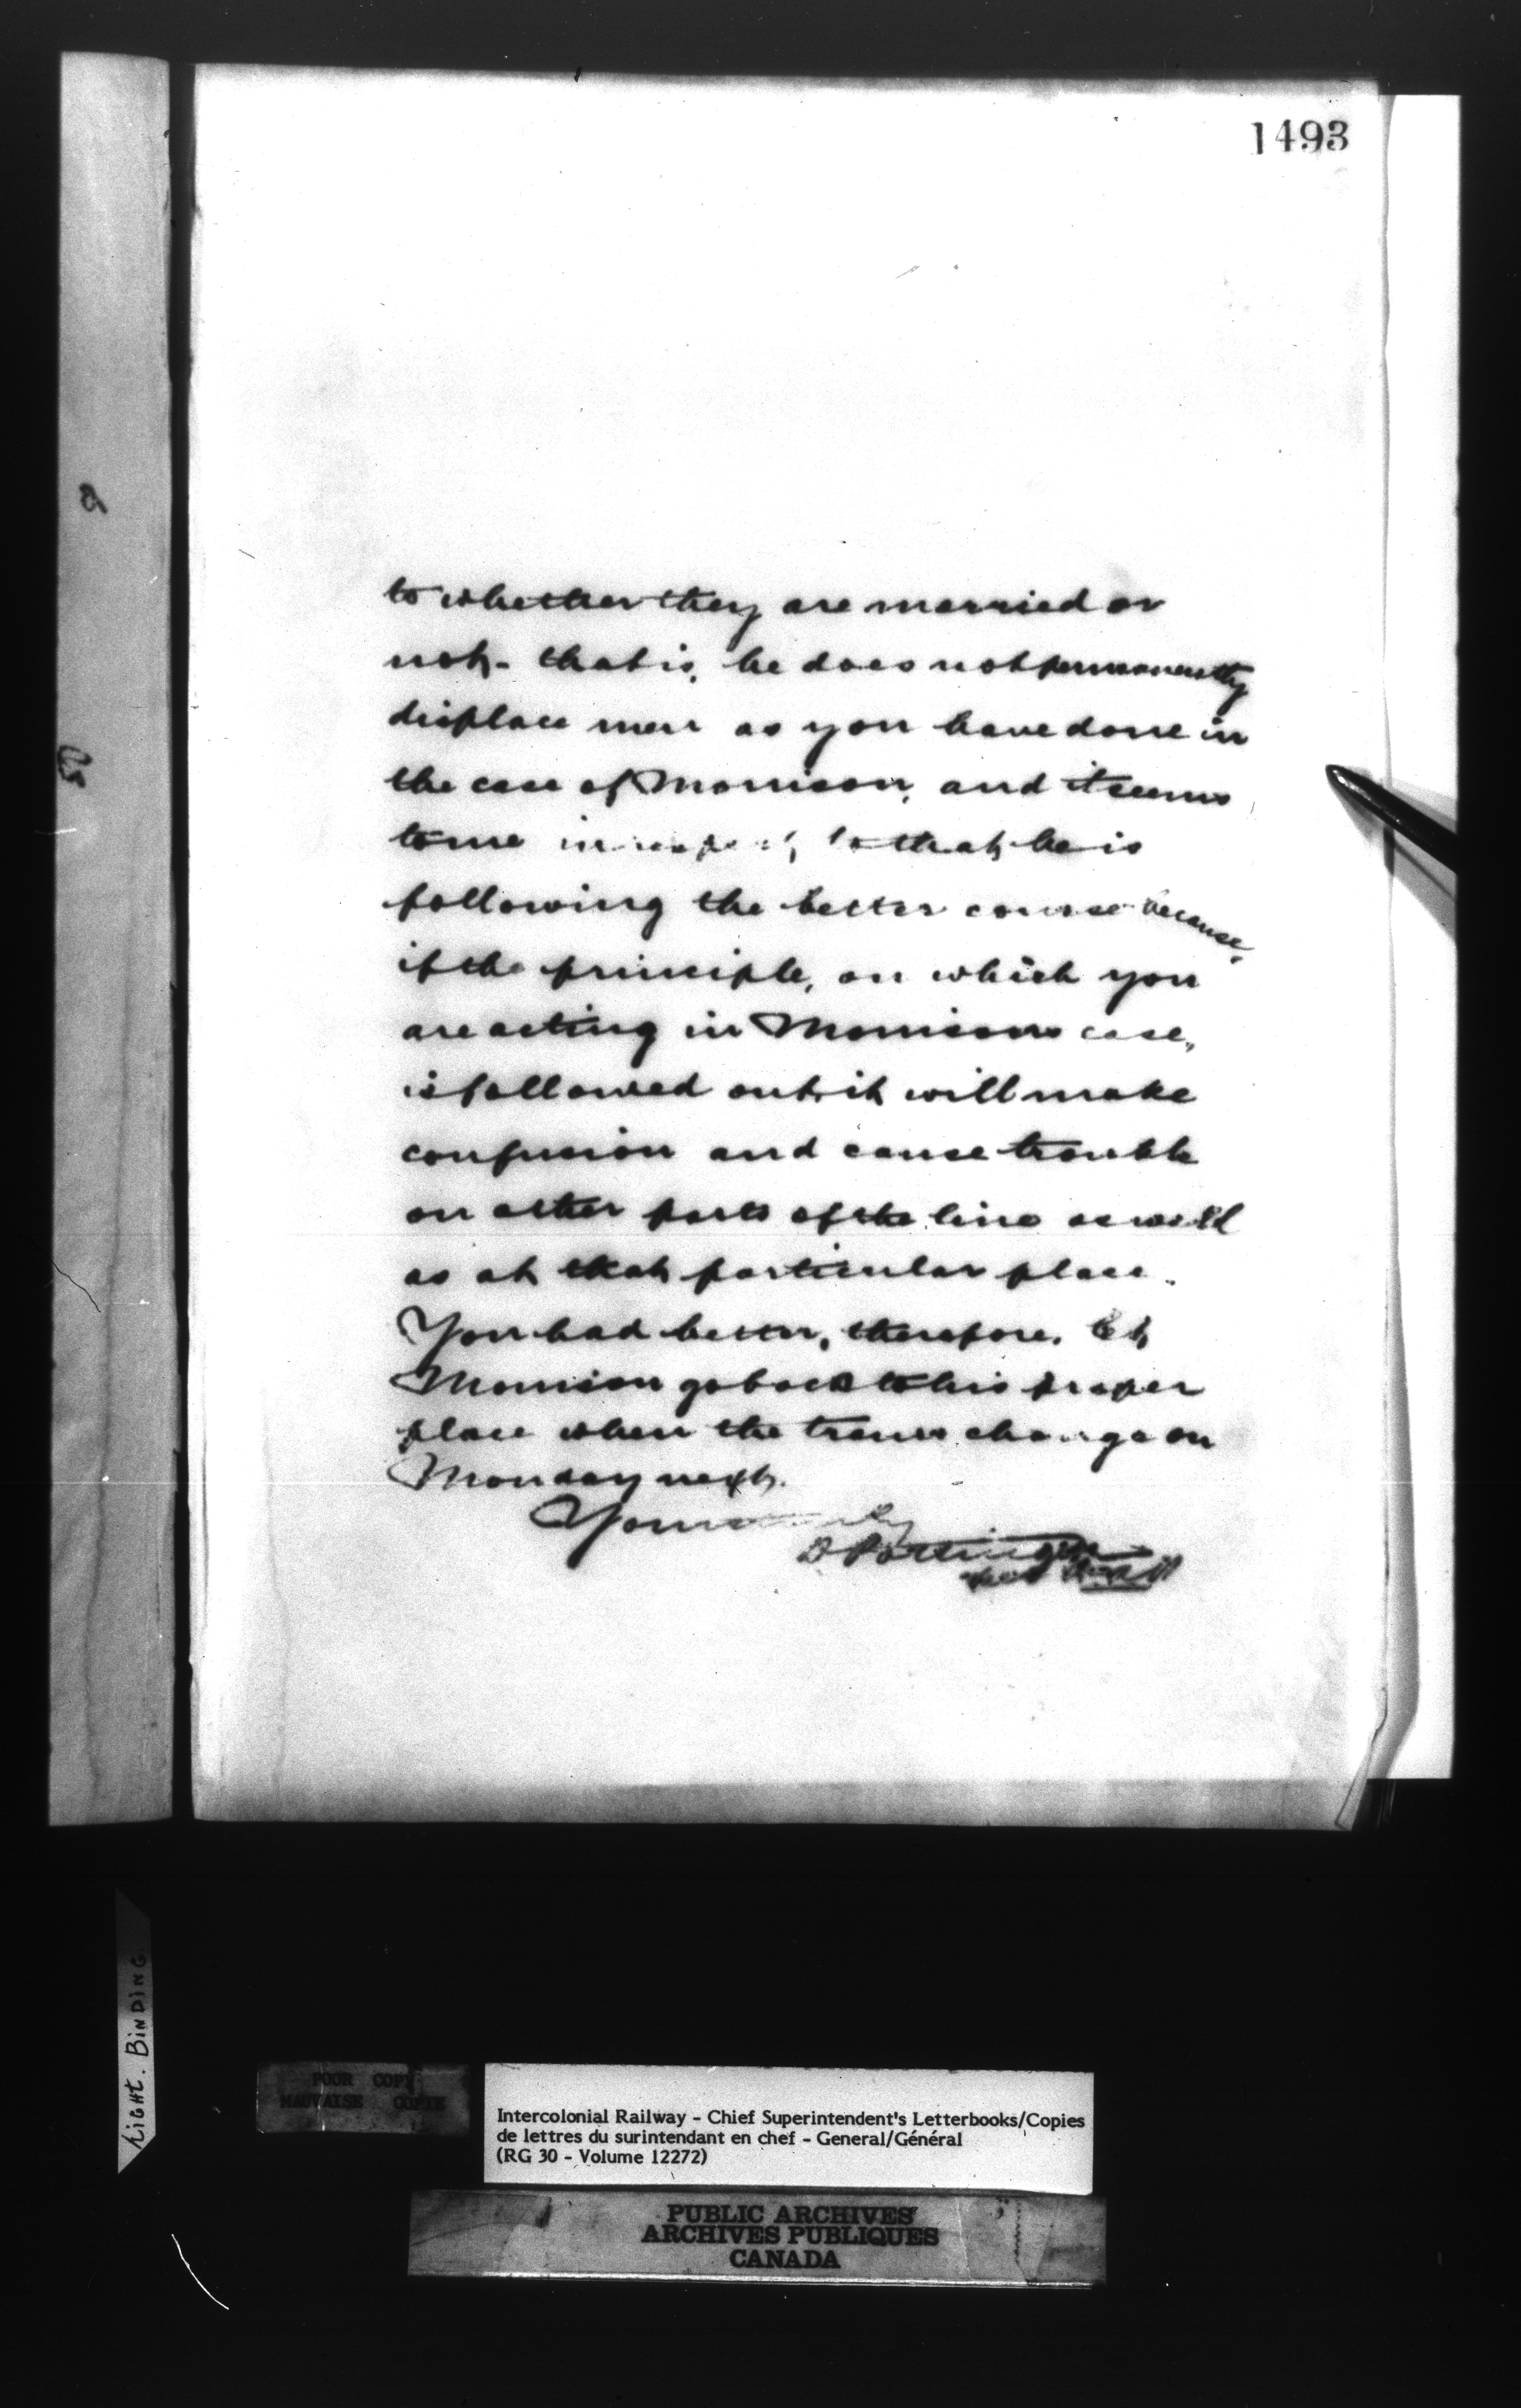 1493
to whether they are married or
not - that is, he does not permanently
displace men as you have done in
the case of Morrison, and it seems
to me in respect to that, he is
following the better course because,
if the principle, on which you
are acting in Morrisons case,
is followed out, it will make
confusion and cause trouble
on other parts of the line as well
as at that particular place.
You had better, therefore, let
Morrison go back to his proper
place when the trains change on
Monday next.
Yours truly
D Pottinger
LIGHT. BINDING
POOR COPY
MAUVAISE COPIE
Intercolonial Railway - Chief Superintendent's Letterbooks/Copies
de lettres du surintendant en chef - General/Général
(RG 30 - Volume 12272)
PUBLIC ARCHIVES
ARCHIVES PUBLIQUES
CANADA